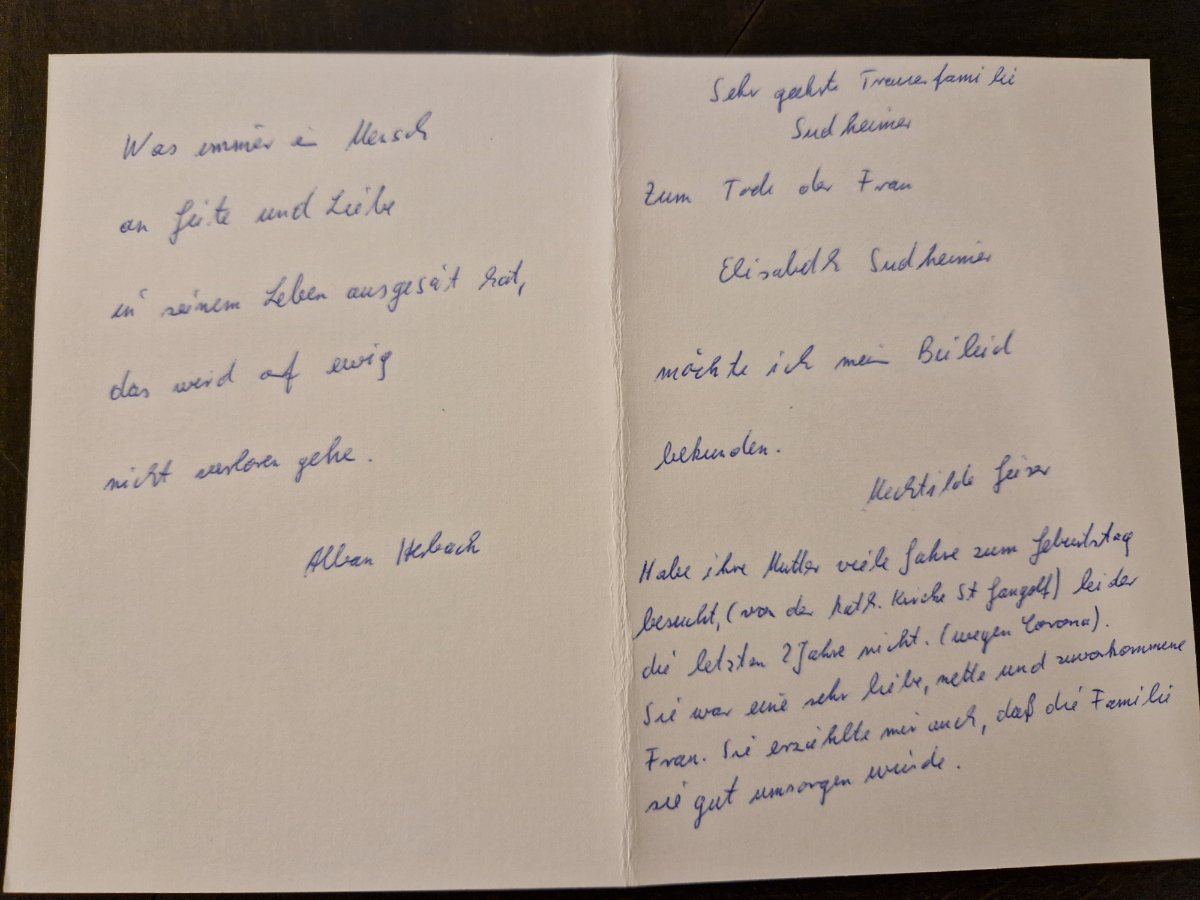 Was immer ein Mensch
an Güte und Liebe
in seinem Leben ausgesät hat,
das wird auf ewig
nicht verloren gehe.
Alban Herbach
Sehr geehrte Trauerfamilie
Sudheimer
Zum Tode der Frau
Elisabeth Sudheimer
möchte ich mein Beileid
bekunden.
Mechtilde Geiser
Habe ihre Mutter viele Jahre zum Geburtstag
besucht, (von der kath. Kirche St Gangolf) leider
die letzten 2 Jahre nicht. (wegen Corona).
Sie war eine sehr liebe, nette und zuvorkommene
Frau. Sie erzählte mir auch, daß die Familie
sie gut umsorgen würde.